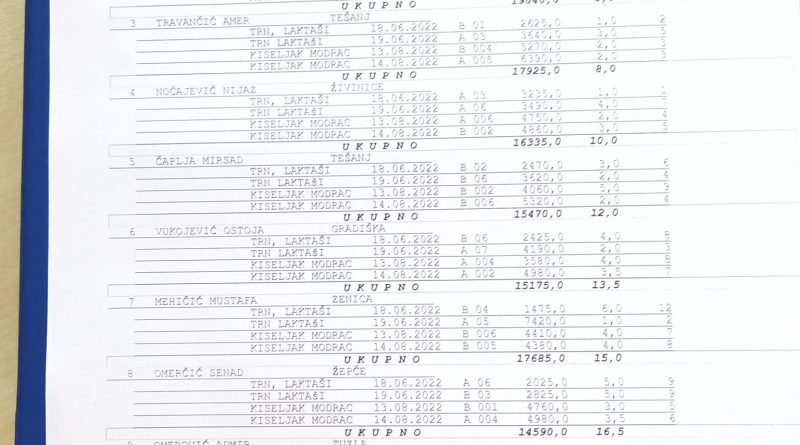 UKUPNO 19040,0
3 TRAVANČIĆ AMER TEŠANJ
TRN, LAKTAŠI 18.06.2022 B 01 2625,0 1,0 2
TRN, LAKTAŠI 19.06.2022 A 03 3640,0 3,0 5
KISELJAK MODRAC 13.08.2022 B 004 5270,0 2,0 3
KISELJAK MODRAC 14.08.2022 A 005 6390,0 2,0 3
UKUPNO 17925,0 8,0
4 NOĆAJEVIĆ NIJAZ ŽIVINICE
TRN, LAKTAŠI 18.06.2022 A 03 3235,0 1,0 1
TRN, LAKTAŠI 19.06.2022 A 06 3490,0 4,0 7
KISELJAK MODRAC 13.08.2022 A 006 4750,0 2,0 4
KISELJAK MODRAC 14.08.2022 B 002 4860,0 3,0 5
UKUPNO 16335,0 10,0
5 ČAPLJA MIRSAD TEŠANJ
TRN, LAKTAŠI 18.06.2022 B 02 2470,0 3,0 6
TRN LAKTAŠI 19.06.2022 B 06 3620,0 2,0 4
KISELJAK MODRAC 13.08.2022 B 002 4060,0 5,0 9
KISELJAK MODRAC 14.08.2022 B 006 5320,0 2,0 4
UKUPNO 15470,0 12,0
6 VUKOJEVIĆ OSTOJA GRADIŠKA
TRN, LAKTAŠI 18.06.2022 B 06 2425,0 4,0 8
TRN LAKTAŠI 19.06.2022 A 07 4190,0 2,0 3
KISELJAK MODRAC 13.08.2022 A 004 3580,0 4,0 8
KISELJAK MODRAC 14.08.2022 A 002 4980,0 3,5 7
UKUPNO 15175,0 13,5
7 MEHIČIĆ MUSTAFA ZENICA
TRN, LAKTAŠI 18.06.2022 B 04 1475,0 6,0 12
TRN LAKTAŠI 19.06.2022 A 05 7420,0 1,0 2
KISELJAK MODRAC 13.08.2022 B 006 4410,0 4,0 7
KISELJAK MODRAC 14.08.2022 B 005 4380,0 4,0 8
UKUPNO 17685,0 15,0
8 OMERČIĆ SENAD ŽEPČE
TRN, LAKTAŠI 18.06.2022 A 06 2025,0 5,0 9
TRN LAKTAŠI 19.06.2022 B 03 2825,0 5,0 9
KISELJAK MODRAC 13.08.2022 B 001 4760,0 3,0 5
KISELJAK MODRAC 14.08.2022 A 004 4980,0 3,5 6
UKUPNO 14590,0 16,5
9 OMEROVIĆ ADMIR TUZLA